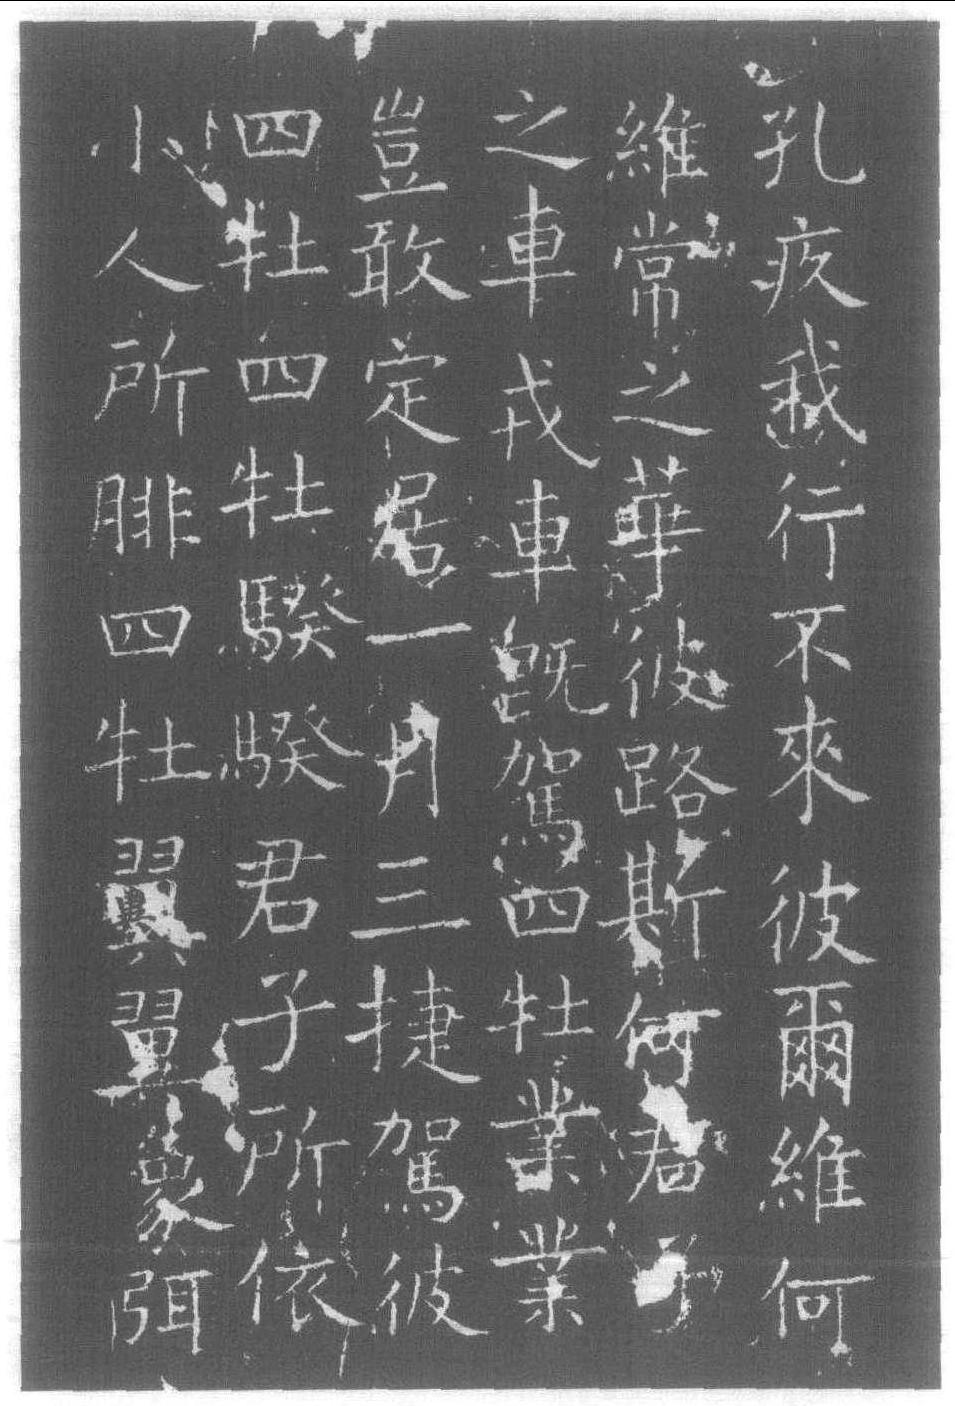 孔疚我行不來彼爾維何
維常之華彼路斯何君子
之車戎車既駕四牡業業
豈敢定居一月三捷駕彼
四牡四牡騤騤君子所依
小人所腓四牡翼翼象弭